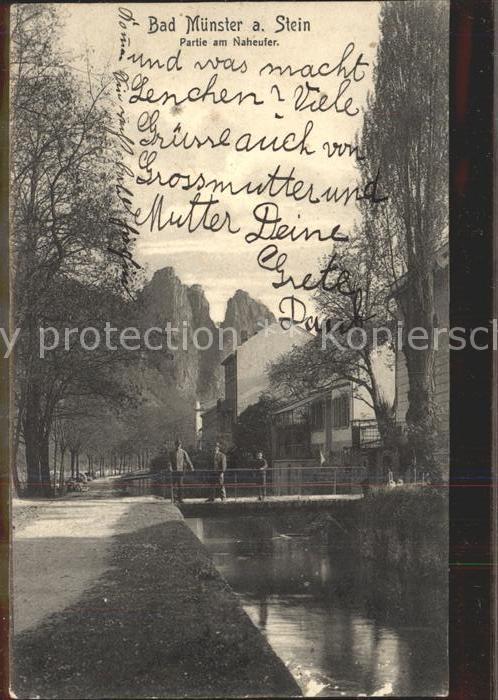 Bad Münster a. Stein
Partie am Naheufer.
und was macht
Lenchen? Viele
Grüsse auch von
Grossmutter und
Mutter Deine
Grete
y protection · Kopiersc